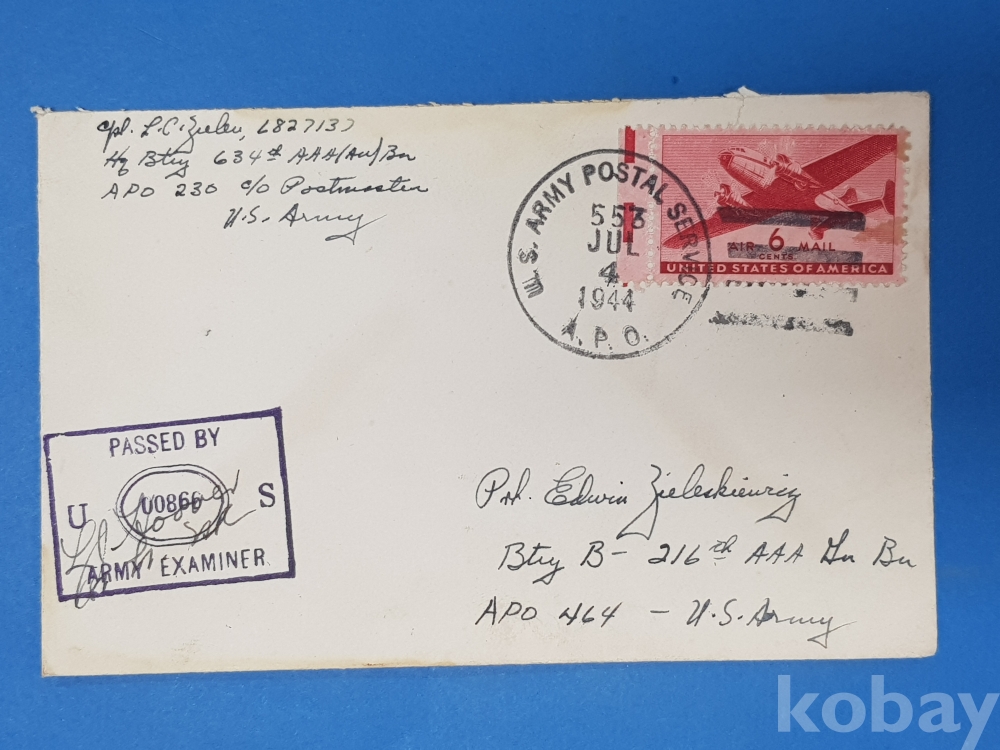 Cpl. L.C. Zielen, 6827137
Hq Btry 634th AAA(AW)Bn
APO 230 c/o Postmaster
U.S. Army
U.S. ARMY POSTAL SERVICE
553
JUL
4
1944
A.P.O.
AIR 6 MAIL
CENTS
UNITED STATES OF AMERICA
PASSED BY
U 00866 S
ARMY EXAMINER
Pvt. Edwin Zieleskiewicz
Btry B - 216th AAA Gn Bn
APO 464 - U.S. Army
kobay